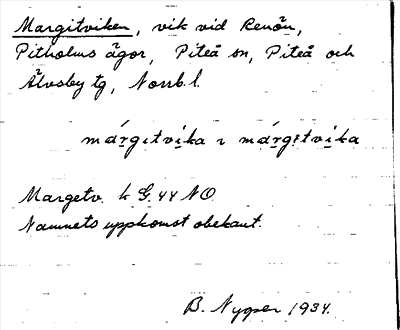 Margitviken, vik vid Renön,
Pitholms ägor, Piteå sn, Piteå och
Älvsby tg, Norrb. l.
márgıtvi̱ka ı márgıtvi̱ka
Margetv. k G. 44 NO.
Namnets uppkomst obekant.
B. Nyqser 1934.